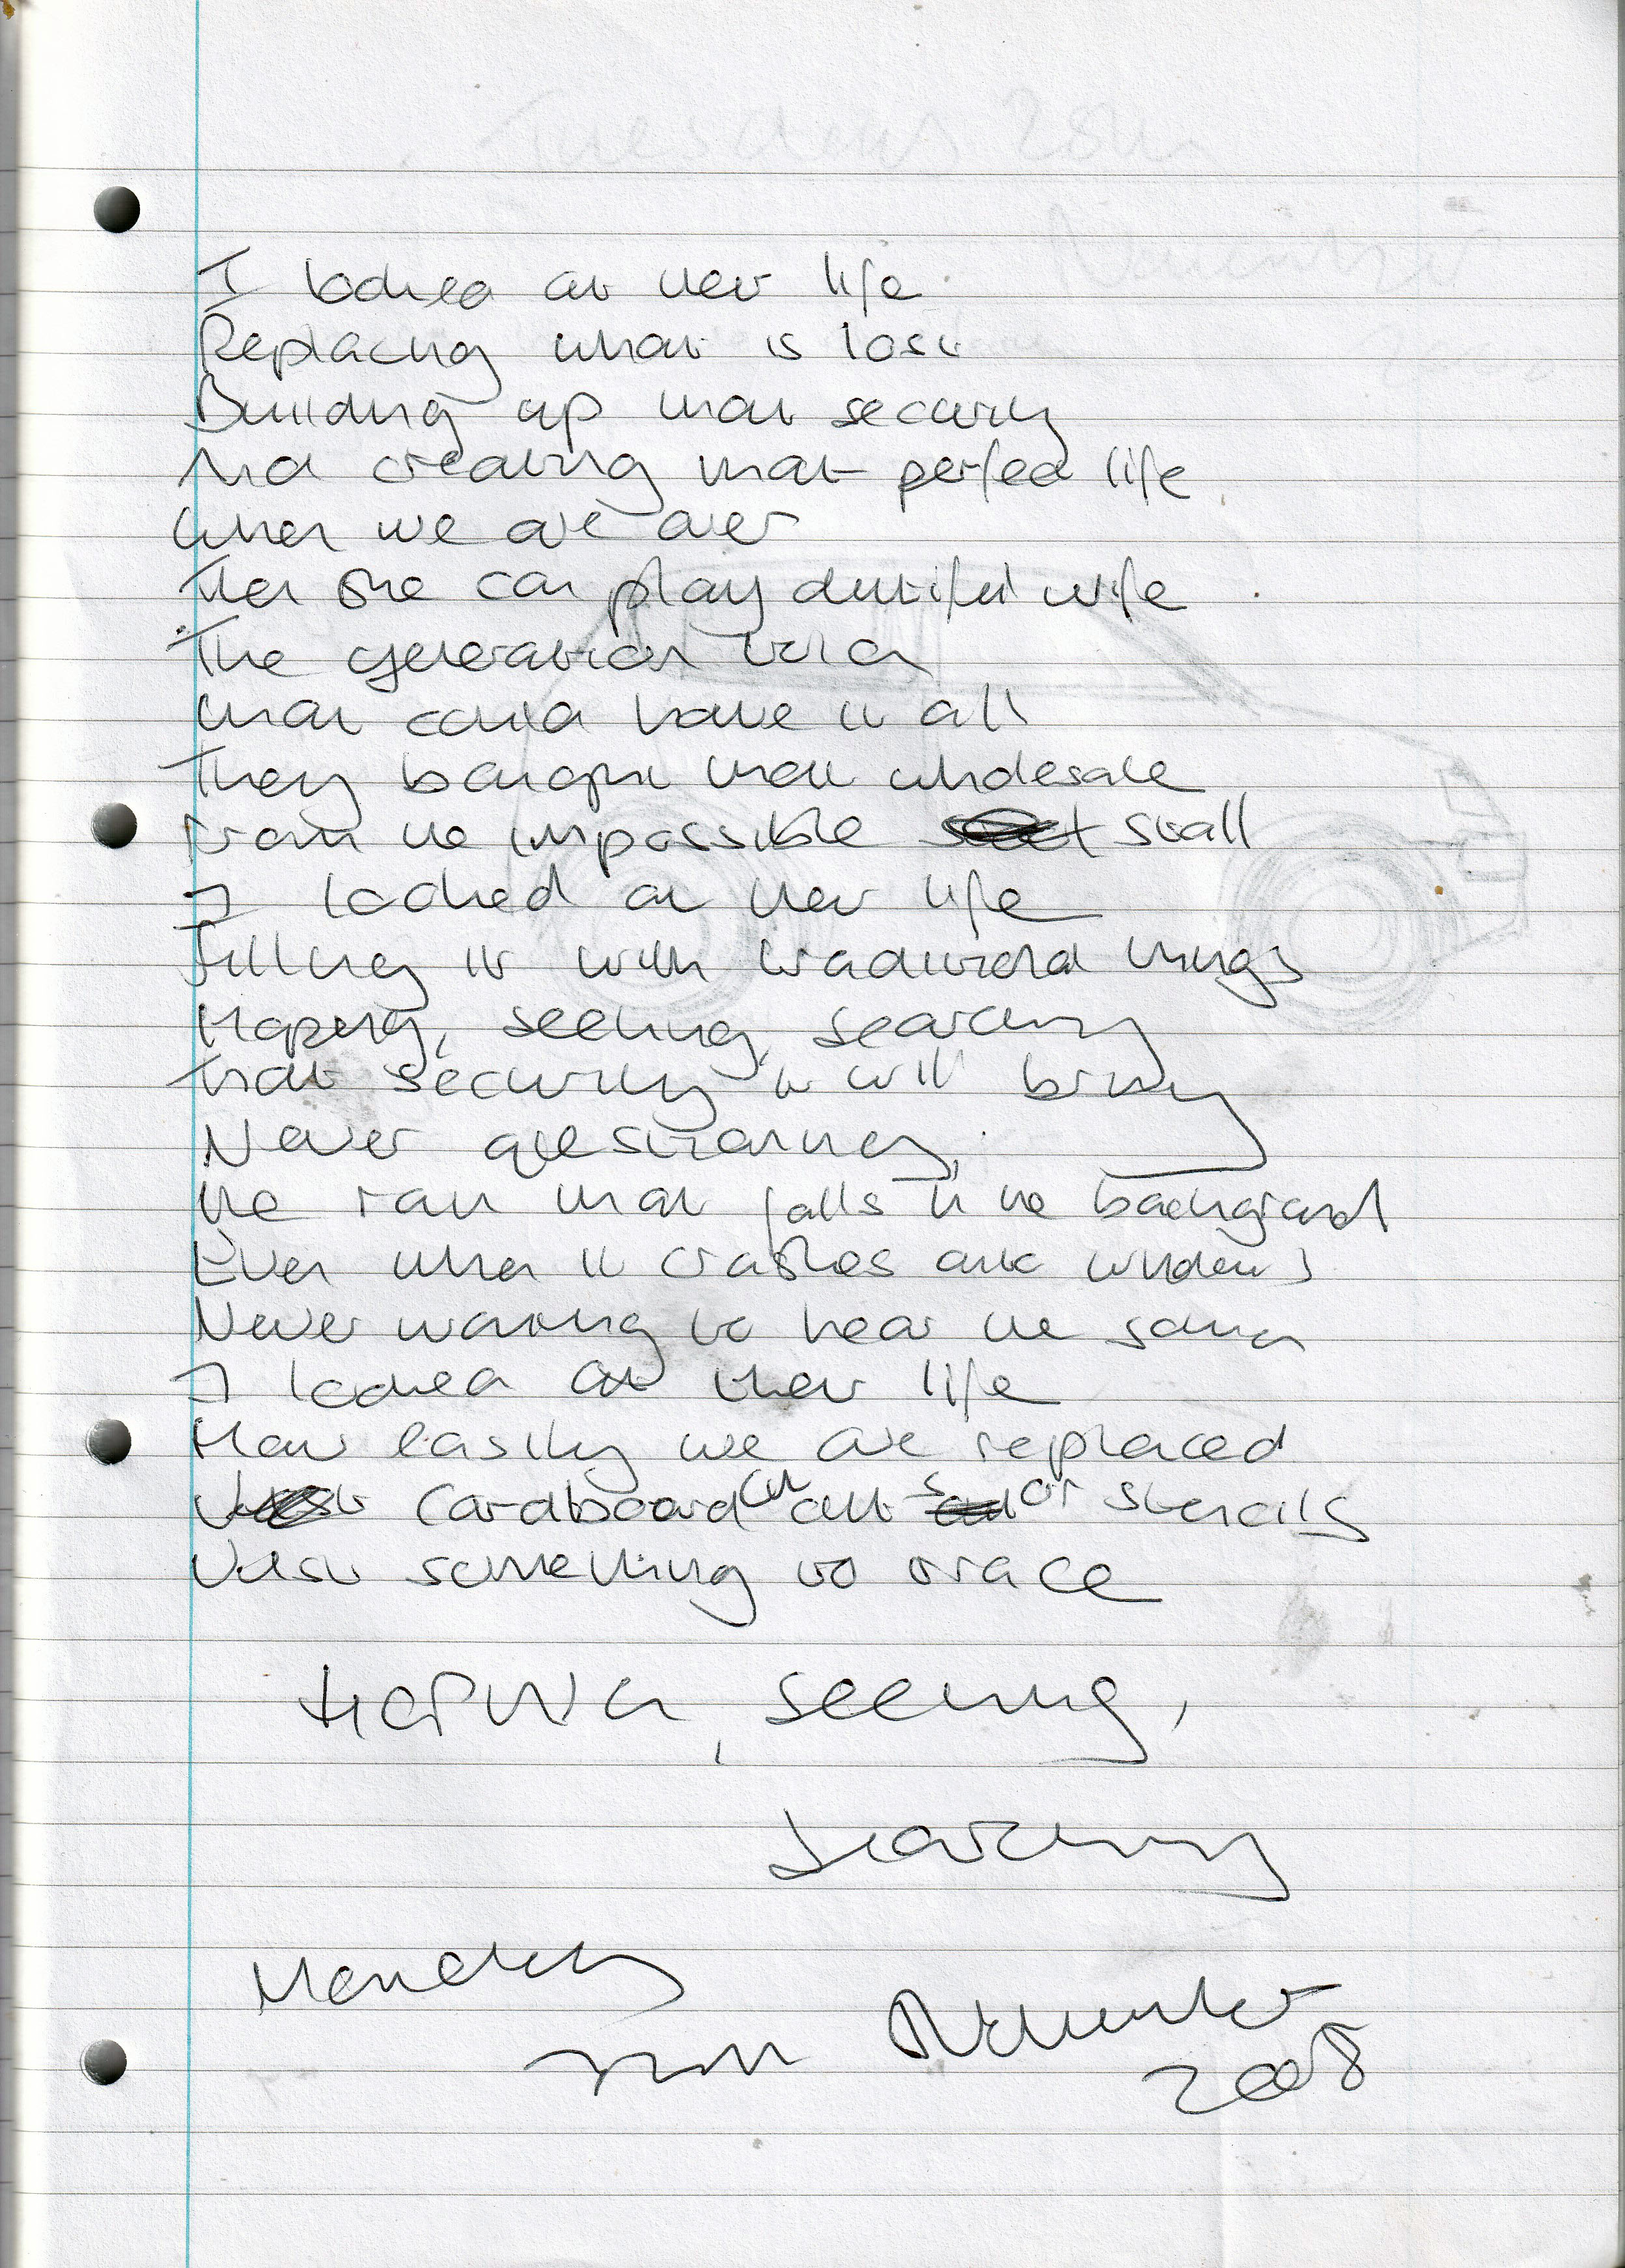 I looked at their life
Replacing what is lost
Building up that security
And creating that perfect life
When we are over
Then one can play dutiful wife
The generation told
That could have it all
They bought that wholesale
From the impossible stall
I looked at their life
Filling it with traditional things
Hoping, seeking, searching
That security it will bring
Never questioning,
The rain that falls in the background
Even when it crashes the windows
Never wanting to hear the sound
I looked at their life
How easily we are replaced
Cardboard cut outs or stencils
Just something to trace
HOPING, seeking,
Searching
Monday
November
2008